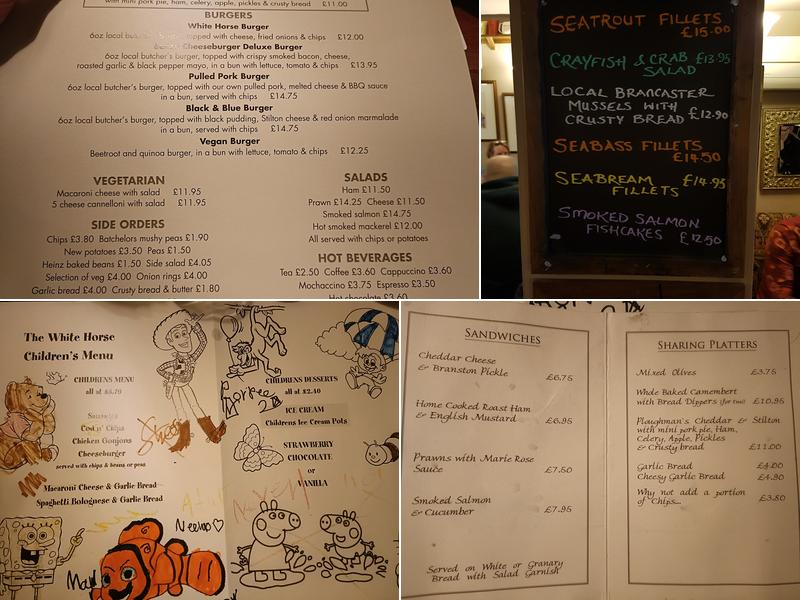 with mini pork pie, ham, celery, apple, pickles & crusty bread £11.00
BURGERS
White Horse Burger
6oz local topped with cheese, fried onions & chips £12.00
Cheeseburger Deluxe Burger
6oz local butcher's, topped with crispy smoked bacon, cheese,
roasted garlic & black pepper mayo, in a bun with lettuce, tomato & chips £13.95
Pulled Pork Burger
6oz local butcher's burger, topped with our own pulled pork, melted cheese & BBQ sauce
in a bun, served with chips £14.75
Black & Blue Burger
6oz local butcher's burger, topped with black pudding, Stilton cheese & red onion marmalade
in a bun, served with chips £14.75
Vegan Burger
Beetroot and quinoa burger, in a bun with lettuce, tomato & chips £12.25
VEGETARIAN
Macaroni cheese with salad £11.95
5 cheese cannelloni with salad £11.95
SIDE ORDERS
Chips £3.80 Batchelors mushy peas £1.90
New potatoes £3.50 Peas £1.50
Heinz baked beans £1.50 Side salad £4.05
Selection of veg £4.00 Onion rings £4.00
Garlic bread £4.00 Crusty bread & butter £1.80
SALADS
Ham £11.50
Prawn £14.25 Cheese £11.50
Smoked salmon £14.75
Hot smoked mackerel £12.00
All served with chips or potatoes
HOT BEVERAGES
Tea £2.50 Coffee £3.60 Cappuccino £3.60
Mochaccino £3.75 Espresso £3.50
Hot chocolate £3.60
SEATROUT FILLETS
£15.00
CRAYFISH & CRAB £13.95
SALAD
LOCAL BRANCASTER
MUSSELS WITH
CRUSTY BREAD £12.90
SEABASS FILLETS
£14.50
SEABREAM £14.95
FILLETS
SMOKED SALMON
FISHCAKES £12.50
The White Horse
Children's Menu
CHILDRENS MENU
all at £5.70
Sausages
Cod n' Chips
Chicken Goujons
Cheeseburger
served with chips & beans or peas
Macaroni Cheese & Garlic Bread
Spaghetti Bolognese & Garlic Bread
Neemo
CHILDRENS DESSERTS
all at £2.40
ICE CREAM
Childrens Ice Cream Pots
STRAWBERRY
CHOCOLATE
or
VANILLA
SANDWICHES
Cheddar Cheese
& Branston Pickle £6.75
Home Cooked Roast Ham
& English Mustard £6.95
Prawns with Marie Rose
Sauce £7.50
Smoked Salmon
& Cucumber £7.95
Served on White or Granary
Bread with Salad Garnish
SHARING PLATTERS
Mixed Olives £3.75
Whole Baked Camembert
with Bread Dippers (for two) £10.95
Ploughman's Cheddar & Stilton
with mini pork pie, Ham,
Celery, Apple, Pickles
& Crusty bread £11.00
Garlic Bread £4.00
Cheesy Garlic Bread £4.90
Why not add a portion
of Chips... £3.80